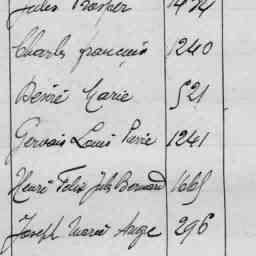 Jules Prosper 1424
Charles françois 1240
Désiré Marie 521
Gervais Louis Pierre 1241
Henri Felix Bernard 1665
Joseph Marie Ange 296